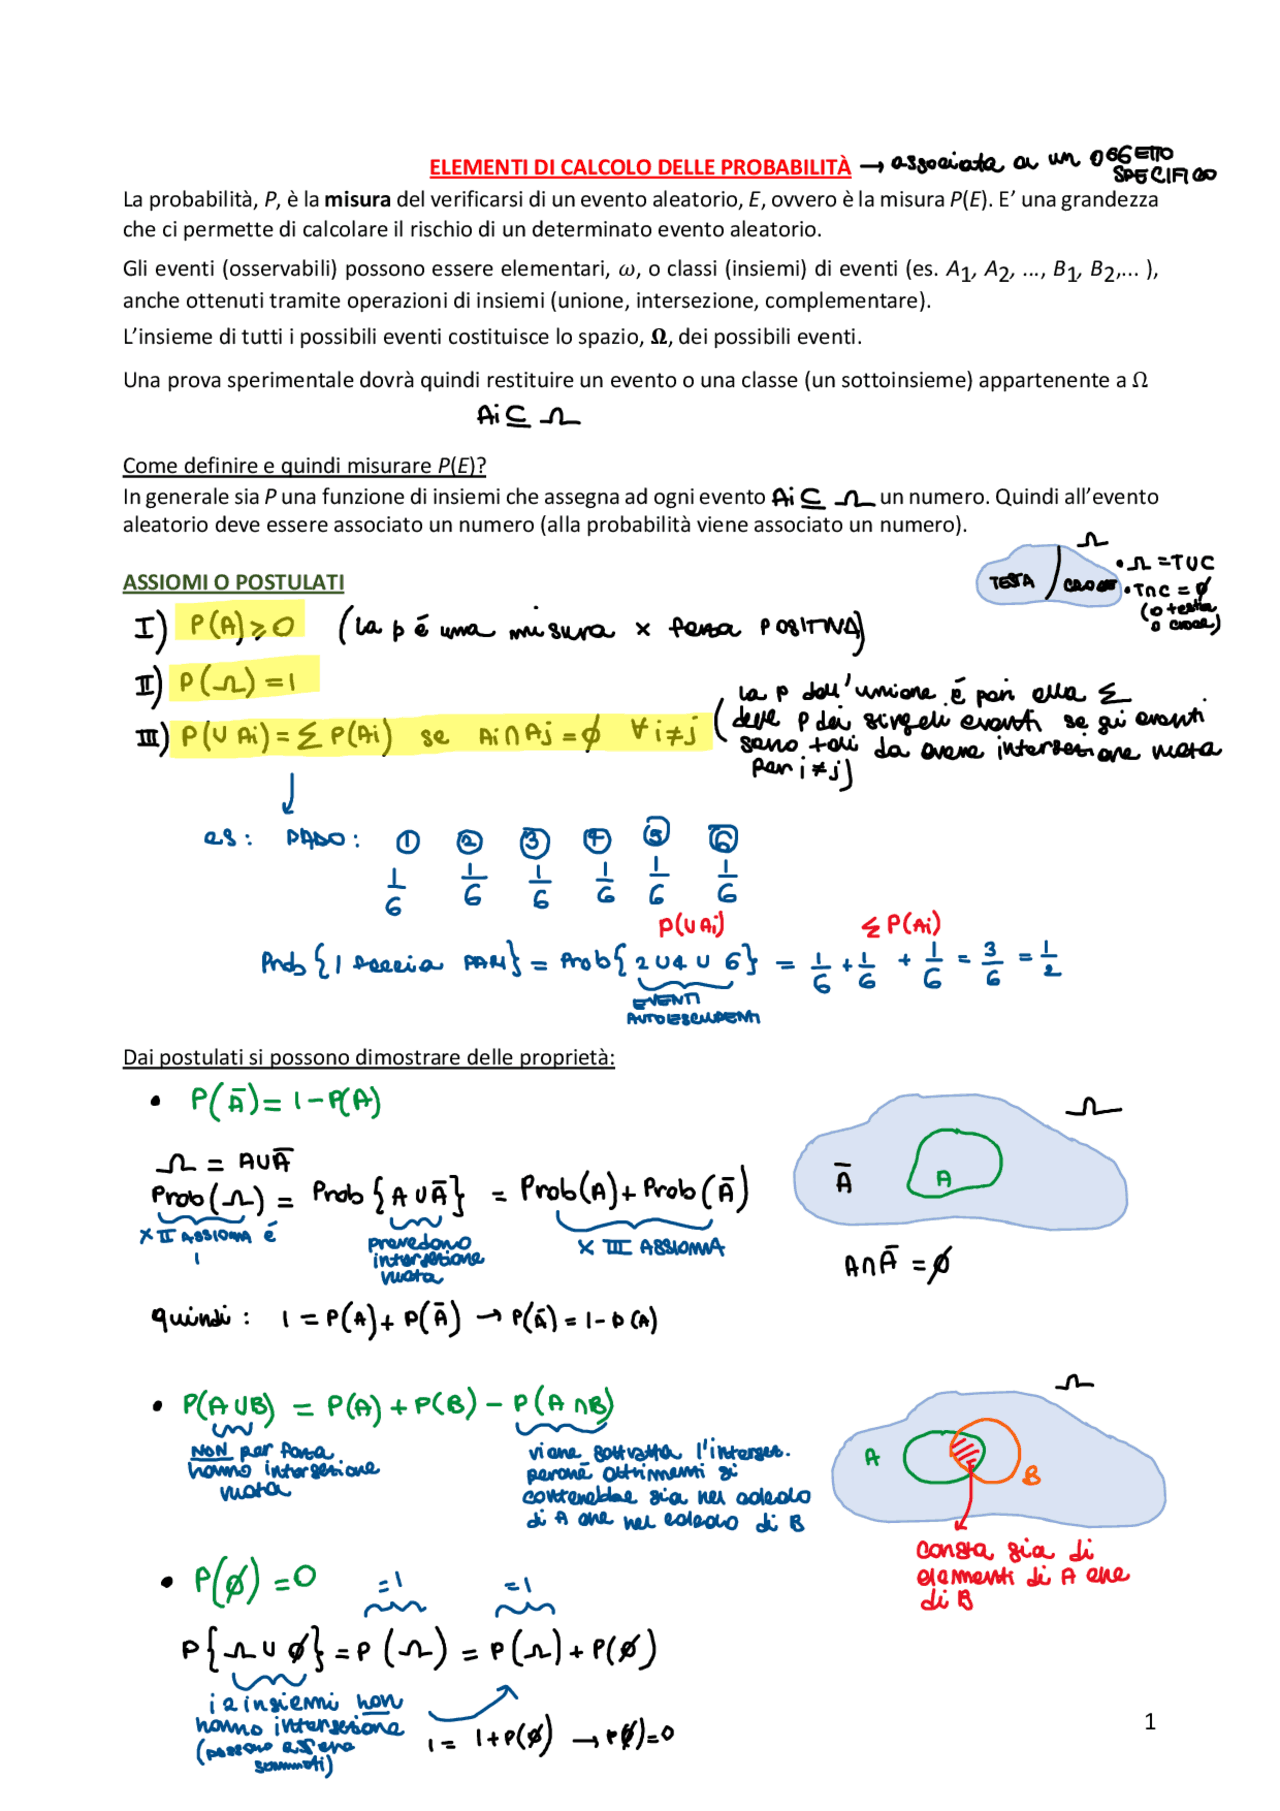 ELEMENTI DI CALCOLO DELLE PROBABILITÀ → associata a un OGGETTO SPECIFICO
La probabilità, P, è la misura del verificarsi di un evento aleatorio, E, ovvero è la misura P(E). E’ una grandezza
che ci permette di calcolare il rischio di un determinato evento aleatorio.
Gli eventi (osservabili) possono essere elementari, ω, o classi (insiemi) di eventi (es. A1, A2, ..., B1, B2,... ),
anche ottenuti tramite operazioni di insiemi (unione, intersezione, complementare).
L’insieme di tutti i possibili eventi costituisce lo spazio, Ω, dei possibili eventi.
Una prova sperimentale dovrà quindi restituire un evento o una classe (un sottoinsieme) appartenente a Ω
Ai ⊆ Ω
Come definire e quindi misurare P(E)?
In generale sia P una funzione di insiemi che assegna ad ogni evento Ai ⊆ Ω un numero. Quindi all’evento
aleatorio deve essere associato un numero (alla probabilità viene associato un numero).
Ω
TESTA CROCE
• Ω = T∪C
• T∩C = ∅
(o testa
o croce)
ASSIOMI O POSTULATI
I) P(A) ≥ 0 (la p é una misura x forza POSITIVA)
II) P(Ω) = 1
III) P(∪ Ai) = Σ P(Ai) se Ai∩Aj = ∅ ∀ i≠j
(la p dell'unione é pari alla Σ
delle p dei singoli eventi se gli eventi
sono tali da avere intersezione nulla
per i≠j)
↓
es: DADO: 1 2 3 4 5 6
1/6 1/6 1/6 1/6 1/6 1/6
P(∪Ai) Σ P(Ai)
Prob{1 faccia PARI} = Prob{2∪4∪6} = 1/6 + 1/6 + 1/6 = 3/6 = 1/2
EVENTI
AUTOESCLUDENTI
Dai postulati si possono dimostrare delle proprietà:
• P(Ā) = 1 - P(A)
Ω = A∪Ā
Prob(Ω) = Prob{A∪Ā} = Prob(A) + Prob(Ā)
x II ASSIOMA é
1
prevedono
intersezione
nulla
x III ASSIOMA
Ω
Ā A
A∩Ā = ∅
quindi: 1 = P(A) + P(Ā) → P(Ā) = 1 - P(A)
• P(A∪B) = P(A) + P(B) - P(A∩B)
NON per forza
hanno intersezione
nulla
viene sottratta l'interses.
perché altrimenti si
conterebbe sia nel calcolo
di A che nel calcolo di B
Ω
A B
consta sia di
elementi di A che
di B
• P(∅) = 0
=1 =1
P{Ω ∪ ∅} = P(Ω) = P(Ω) + P(∅)
i 2 insiemi non
hanno intersezione
(possono essere
sommati)
1 = 1 + P(∅) → P(∅) = 0
1